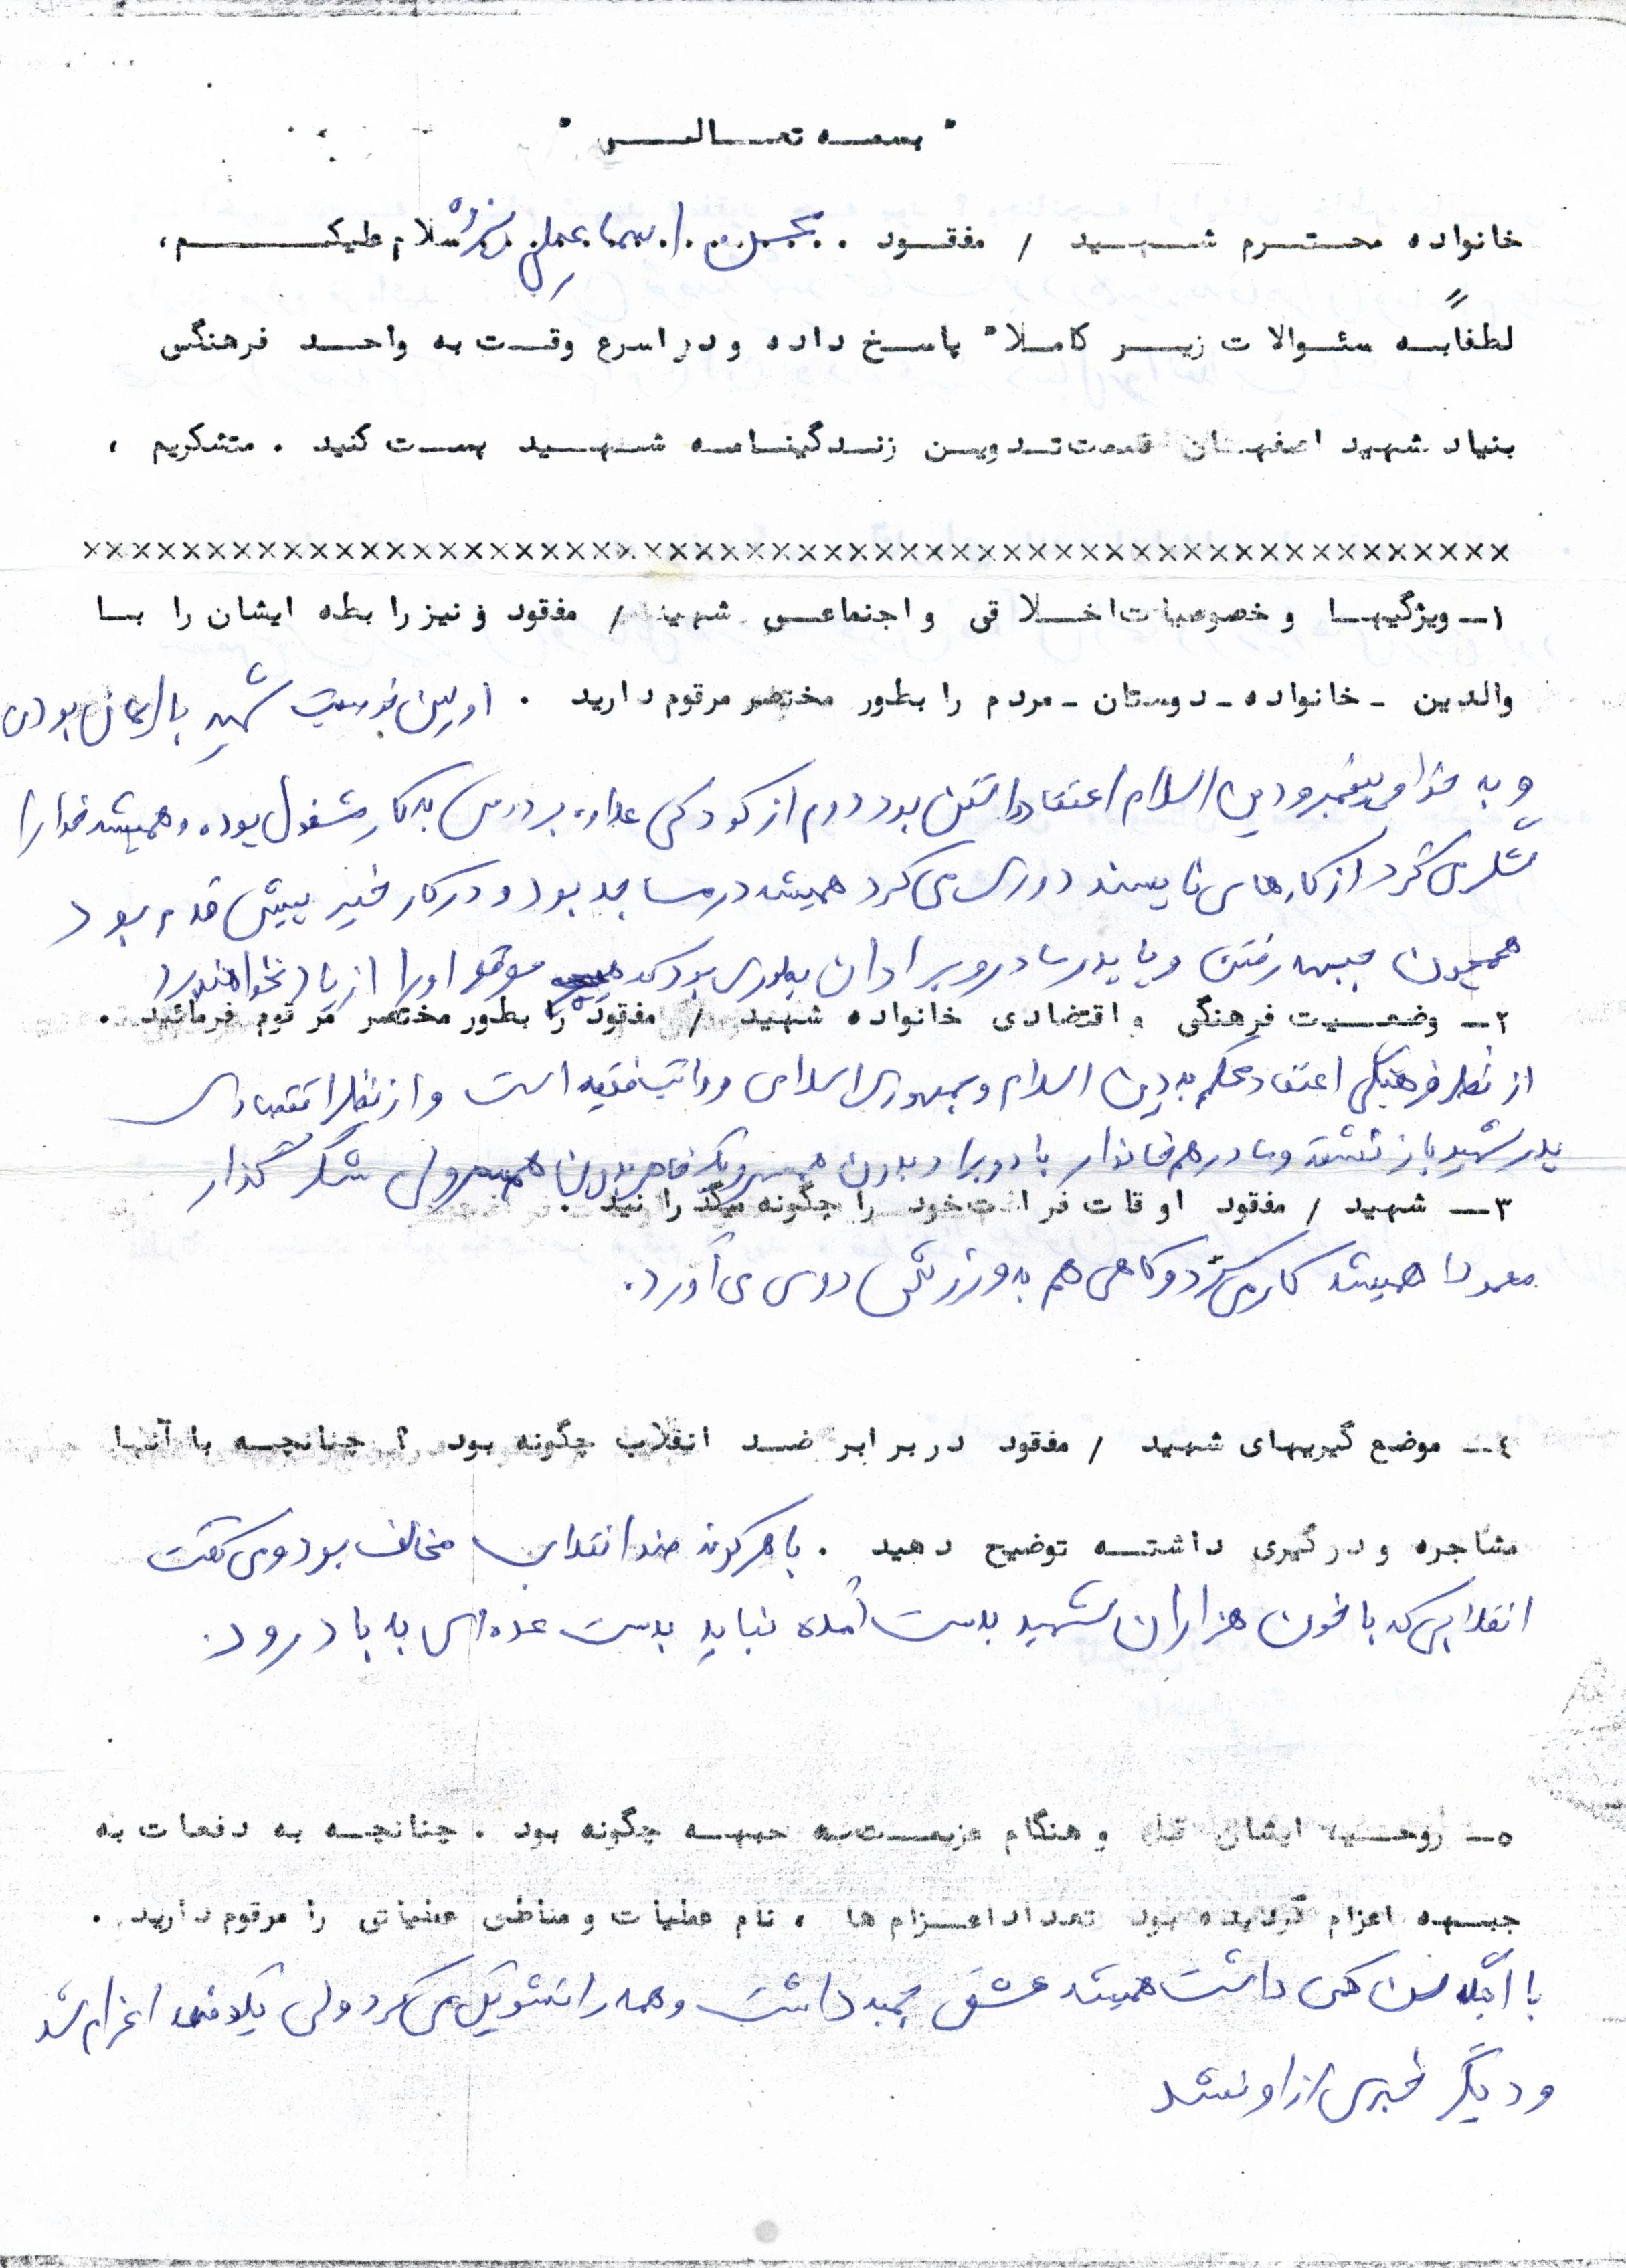 " بسمه تعالی "
خانواده محترم شهید / مفقود . محسن اسماعیلی سلام علیکم،
لطفاً به سئوالات زیر کاملا" پاسخ داده و در اسرع وقت به واحد فرهنگی
بنیاد شهید اصفهان قسمت تدوین زندگینامه شهید پست کنید . متشکریم ،
xxxxxxxxxxxxxxxxxxxxxxxxxxxxxxxxxxxxxxxxxxxxxxxxxxxxxxxx
۱ـ ویژگیها و خصوصیات اخلاقی و اجتماعی شهید / مفقود و نیز رابطه ایشان را با
والدین ـ خانواده ـ دوستان ـ مردم را بطور مختصر مرقوم دارید . اولین شهید با ایمان بودن
و به خدا و پیغمبر و دین اسلام اعتقاد داشتن بود دوم از کودکی علاوه بر درس به کار مشغول بوده و همیشه خدا را
شکر می کرد از کارهای ناپسند دوری می کرد همیشه در مساجد بود و در کار خیر پیش قدم بود
همچون جبهه رفتن و با پدر مادر و برادران بطوری بود که هیچ موقع او را از یاد نخواهند برد
۲ـ وضعیت فرهنگی و اقتضادی خانواده شهید / مفقود را بطور مختصر مرقوم فرمائید .
از نظر فرهنگی اعتقاد محکم به دین اسلام و جمهوری اسلامی ولایت فقیه است و از نظر اقتصادی
پدر شهید بازنشسته و مادر هم خانه دار با دو برادر بدون همسر و یک خواهر بدون همسر ولی شکر گذار
۳ـ شهید / مفقود اوقات فراغت خود را چگونه میگذرانید .
معمولا همیشه کار می کرد و گاهی هم به ورزش روی می آورد.
٤ـ موضع گیریهای شهید / مفقود در برابر ضد انقلاب چگونه بود ؟ چنانچه با آنها
مشاجره و درگیری داشته توضیح دهید . با هر گونه ضد انقلاب مخالف بود و می گفت
انقلابی که با خون هزاران شهید بدست آمده نباید بدست عده ای به باد رود.
۵ـ روحیه ایشان قبل و هنگام عزیمت به جبهه چگونه بود . چنانچه به دفعات به
جبهه اعزام گردیده بود تعداد اعزام ها ، نام عملیات و مناطق عملیاتی را مرقوم دارید .
با اینکه سن کمی داشت همیشه عشق جبهه داشت و همه را تشویق می کرد ولی یکدفعه اعزام شد
و دیگر خبری از او نشد